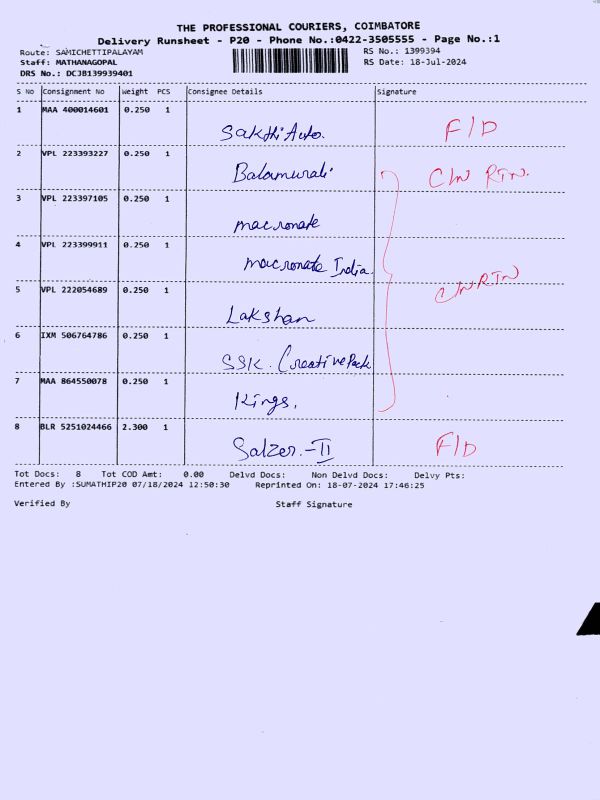 THE PROFESSIONAL COURIERS, COIMBATORE
Delivery Runsheet - P20 - Phone No.:0422-3505555 - Page No.:1
Route: SAMICHETTIPALAYAM RS No.: 1399394
Staff: MATHANAGOPAL RS Date: 18-Jul-2024
DRS No.: DCJB139939401
S No Consignment No Weight PCS Consignee Details Signature
1 MAA 400014601 0.250 1
Sakthi Auto. F/D
2 VPL 223393227 0.250 1
Balamurali C/N RTN.
3 VPL 223397105 0.250 1
macronate
4 VPL 223399911 0.250 1
macronate India.
C/N RTN
5 VPL 222054689 0.250 1
Lakshan
6 IXM 506764786 0.250 1
SSK. Creative Pack
7 MAA 864550078 0.250 1
Kings.
8 BLR 5251024466 2.300 1
Salzer.-II F/D
Tot Docs: 8 Tot COD Amt: 0.00 Delvd Docs: Non Delvd Docs: Delvy Pts:
Entered By :SUMATHIP20 07/18/2024 12:50:30 Reprinted On: 18-07-2024 17:46:25
Verified By Staff Signature